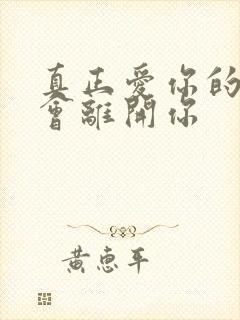 真正愛你的
會離開你
黄惠平